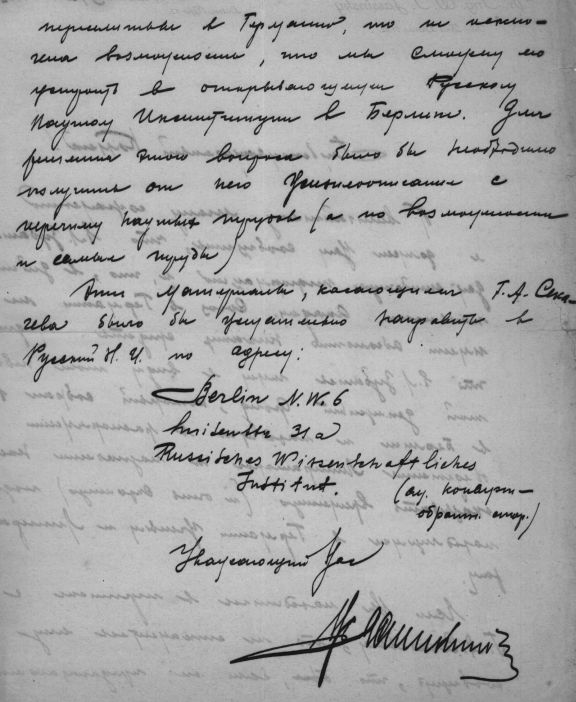 переселиться в Германию, то не исклю-
чена возможность, что мы сможем его
устроить в открывающемся Русском
Научном Институте в Берлине. Для
решения этого вопроса было бы необходимо
получить от него жизнеописание с
перечнем научных трудов (а по возможности
и самые труды)
Эти материалы, касающиеся Т. А. Сека-
чева было бы желательно направить в
Русский Н. И. по адресу:
Berlin N.W. 6
Luisenstr 31a
Russisches Wissenschaftliches
Institut.
(ад. конверт-
обратн. стор.)
Уважающий Вас